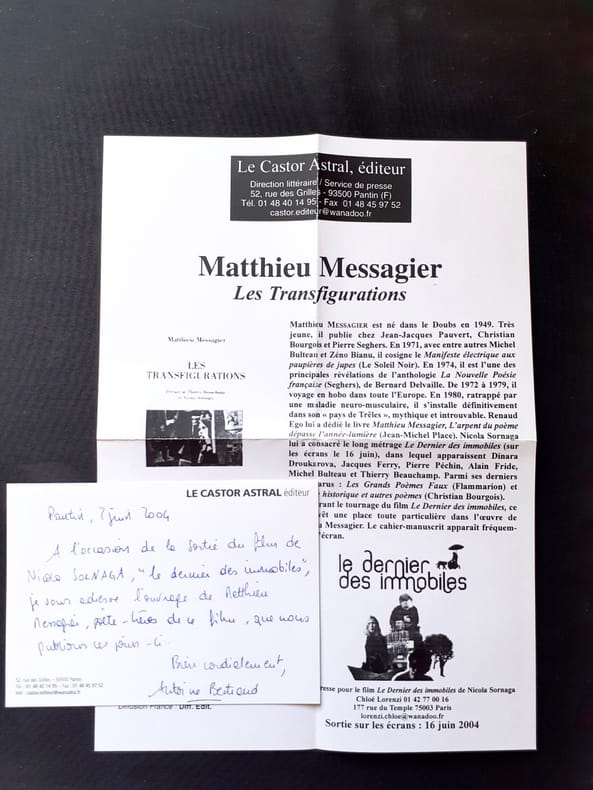 Le Castor Astral, éditeur
Direction littéraire / Service de presse
52, rue des Grilles - 93500 Pantin (F)
Tél. 01 48 40 14 95 - Fax 01 48 45 97 52
castor.editeur@wanadoo.fr
Matthieu Messagier
Les Transfigurations
Matthieu Messagier
LES
TRANSFIGURATIONS
Préface de Thierry Beauchamp
Matthieu MESSAGIER est né dans le Doubs en 1949. Très
jeune, il publie chez Jean-Jacques Pauvert, Christian
Bourgois et Pierre Seghers. En 1971, avec entre autres Michel
Bulteau et Zéno Bianu, il cosigne le Manifeste électrique aux
paupières de jupes (Le Soleil Noir). En 1974, il est l'une des
principales révélations de l'anthologie La Nouvelle Poésie
française (Seghers), de Bernard Delvaille. De 1972 à 1979, il
voyage en hobo dans toute l'Europe. En 1980, rattrapé par
une maladie neuro-musculaire, il s'installe définitivement
dans son « pays de Trêles », mythique et introuvable. Renaud
Ego lui a dédié le livre Matthieu Messagier, L'arpent du poème
dépasse l'année-lumière (Jean-Michel Place). Nicola Sornaga
lui a consacré le long métrage Le Dernier des immobiles (sur
les écrans le 16 juin), dans lequel apparaissent Dinara
Droukarova, Jacques Ferry, Pierre Péchin, Alain Fride,
Michel Bulteau et Thierry Beauchamp. Parmi ses derniers
arus : Les Grands Poèmes Faux (Flammarion) et
historique et autres poèmes (Christian Bourgois).
rant le tournage du film Le Dernier des immobiles, ce
êt une place toute particulière dans l'œuvre de
Messagier. Le cahier-manuscrit apparaît fréquem-
'écran.
le dernier
des immobiles
resse pour le film Le Dernier des immobiles de Nicola Sornaga
Chloé Lorenzi 01 42 77 00 16
177 rue du Temple 75003 Paris
lorenzi.chloe@wanadoo.fr
Sortie sur les écrans : 16 juin 2004
Diffusion France : Diff. Edit.
LE CASTOR ASTRAL éditeur
Pantin, 7 juin 2004
A l'occasion de la sortie du film de
Nicola SORNAGA, "le dernier des immobiles",
je vous adresse l'ouvrage de Matthieu
Messagier, poète-héros de ce film, que nous
publions ces jours-ci.
Bien cordialement,
Antoine Bertrand
52, rue des Grilles - 93500 Pantin
Tél : 01 48 40 14 95 - Fax : 01 48 45 97 52
Mél : castor.editeur@wanadoo.fr